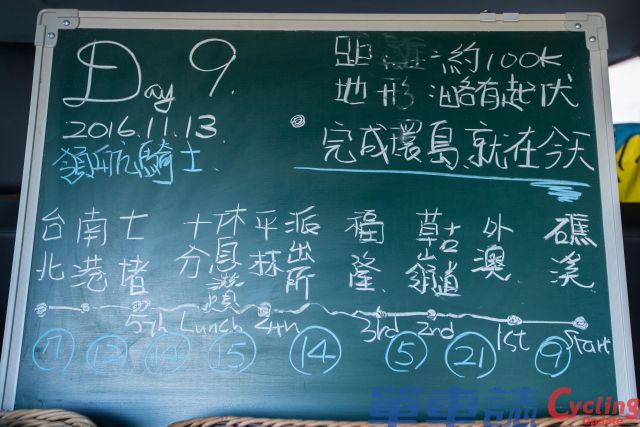 Day 9.
2016.11.13
領航騎士
距離:約100K
地形:略有起伏
完成環島、就在今天
台北 南港 七堵 十分 休息讚 平林 派出所 福隆 草嶺古道 外澳 礁溪
5th Lunch 4th 3rd 2nd 1st Start
7 12 14 15 14 5 21 9
單車誌 Cycling Update